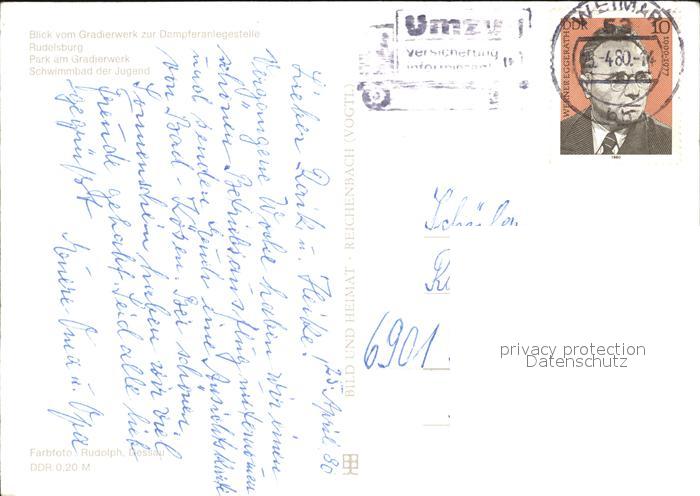 Blick vom Gradierwerk zur Dampferanlegestelle
Rudelsburg
Park am Gradierwerk
Schwimmbad der Jugend
Umzug
Versicherung
informieren!
WEIMAR
53
-4.80.-14
DDR
10
WERNER EGGERATH
1900-1977
1980
25. April 80
Lieber Raik u. Heike!
Vergangene Woche haben wir einen
schönen Betriebsausflug unternommen
und senden Euch eine Ansichtskarte
von Bad-Kösen. Bei schönem
Sonnenschein haben wir viel
Freude gehabt. Seid alle lieb
gegrüßt Eure Oma u. Opa
BILD UND HEIMAT · REICHENBACH (VOGTL)
6901
privacy protection
Datenschutz
Farbfoto: Rudolph, Dessau
DDR 0,20 M